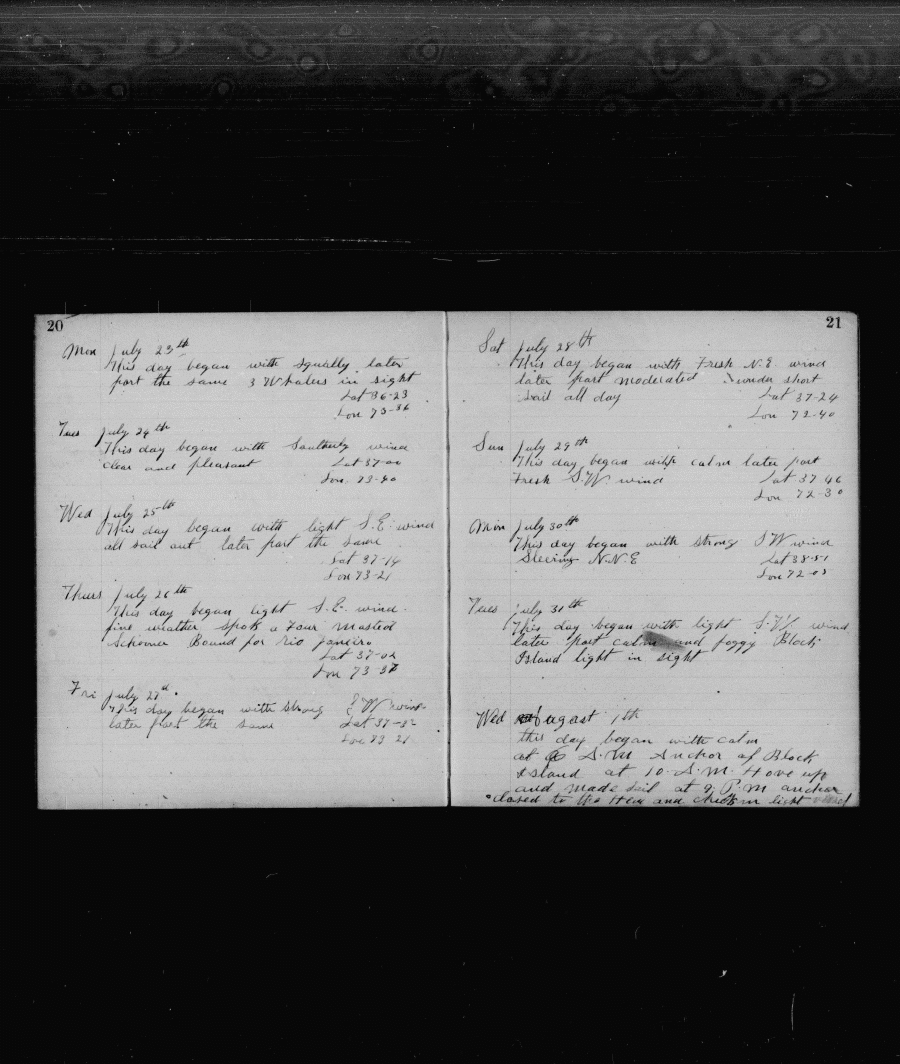 20
Mon July 23th
This day began with Squally later
part the same 3 Whalers in sight
Lat 36-23
Lon 73-36
Tues July 24th
This day began with Southerly wind
clear and pleasant Lat 37-00
Lon 73-40
Wed July 25th
This day began with light S.E. wind
all sail out later part the same
Lat 37-14
Lon 73-21
Thurs July 26th
This day began light S.E. wind.
fine weather spok a Four Masted
Schooner Bound for Rio Janeiro
Lat 37-02
Lon 73-37
Fri July 27th
This day began with strong S W wind
later part the same Lat 37-02
Lon 73-21
21
Sat July 28th
This day began with Fresh N.E. wind
later part moderated under short
sail all day Lat 37-24
Lon 72-40
Sun July 29th
This day began with calm later part
Fresh S.W. wind Lat 37 46
Lon 72-30
Mon July 30th
This day began with strong S W wind
Steering N.N.E Lat 38-51
Lon 72-05
Tues July 31th
This day began with light S.W. wind
later part calm and foggy Block
Island light in sight
Wed August 1th
this day began with calm
at 6 A.M Anchor of Block
Island at 10-A.M. Hove up
and made sail at 9 P.M anchor
closed to the Hen and light